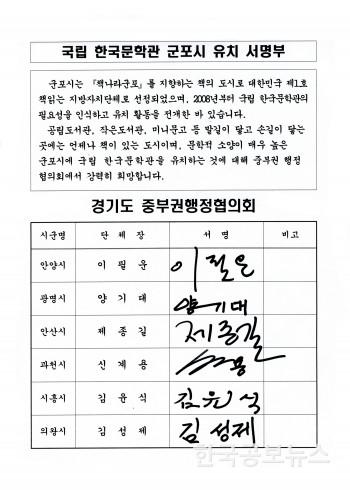 국립 한국문학관 군포시 유치 서명부
군포시는 『책나라군포』를 지향하는 책의 도시로 대한민국 제1호
책읽는 지방자치단체로 선정되었으며, 2008년부터 국립 한국문학관의
필요성을 인식하고 유치 활동을 전개한 바 있습니다.
공립도서관, 작은도서관, 미니문고 등 발길이 닿고 손길이 닿는
곳에는 언제나 책이 있는 도시이며, 문학적 소양이 매우 높은
군포시에 국립 한국문학관을 유치하는 것에 대해 중부권 행정
협의회에서 강력히 희망합니다.
경기도 중부권행정협의회
시군명 단체장 서명 비고
안양시 이필운 이필운
광명시 양기대 양기대
안산시 제종길 제종길
과천시 신계용
시흥시 김윤식 김윤식
의왕시 김성제 김성제
한국공보뉴스